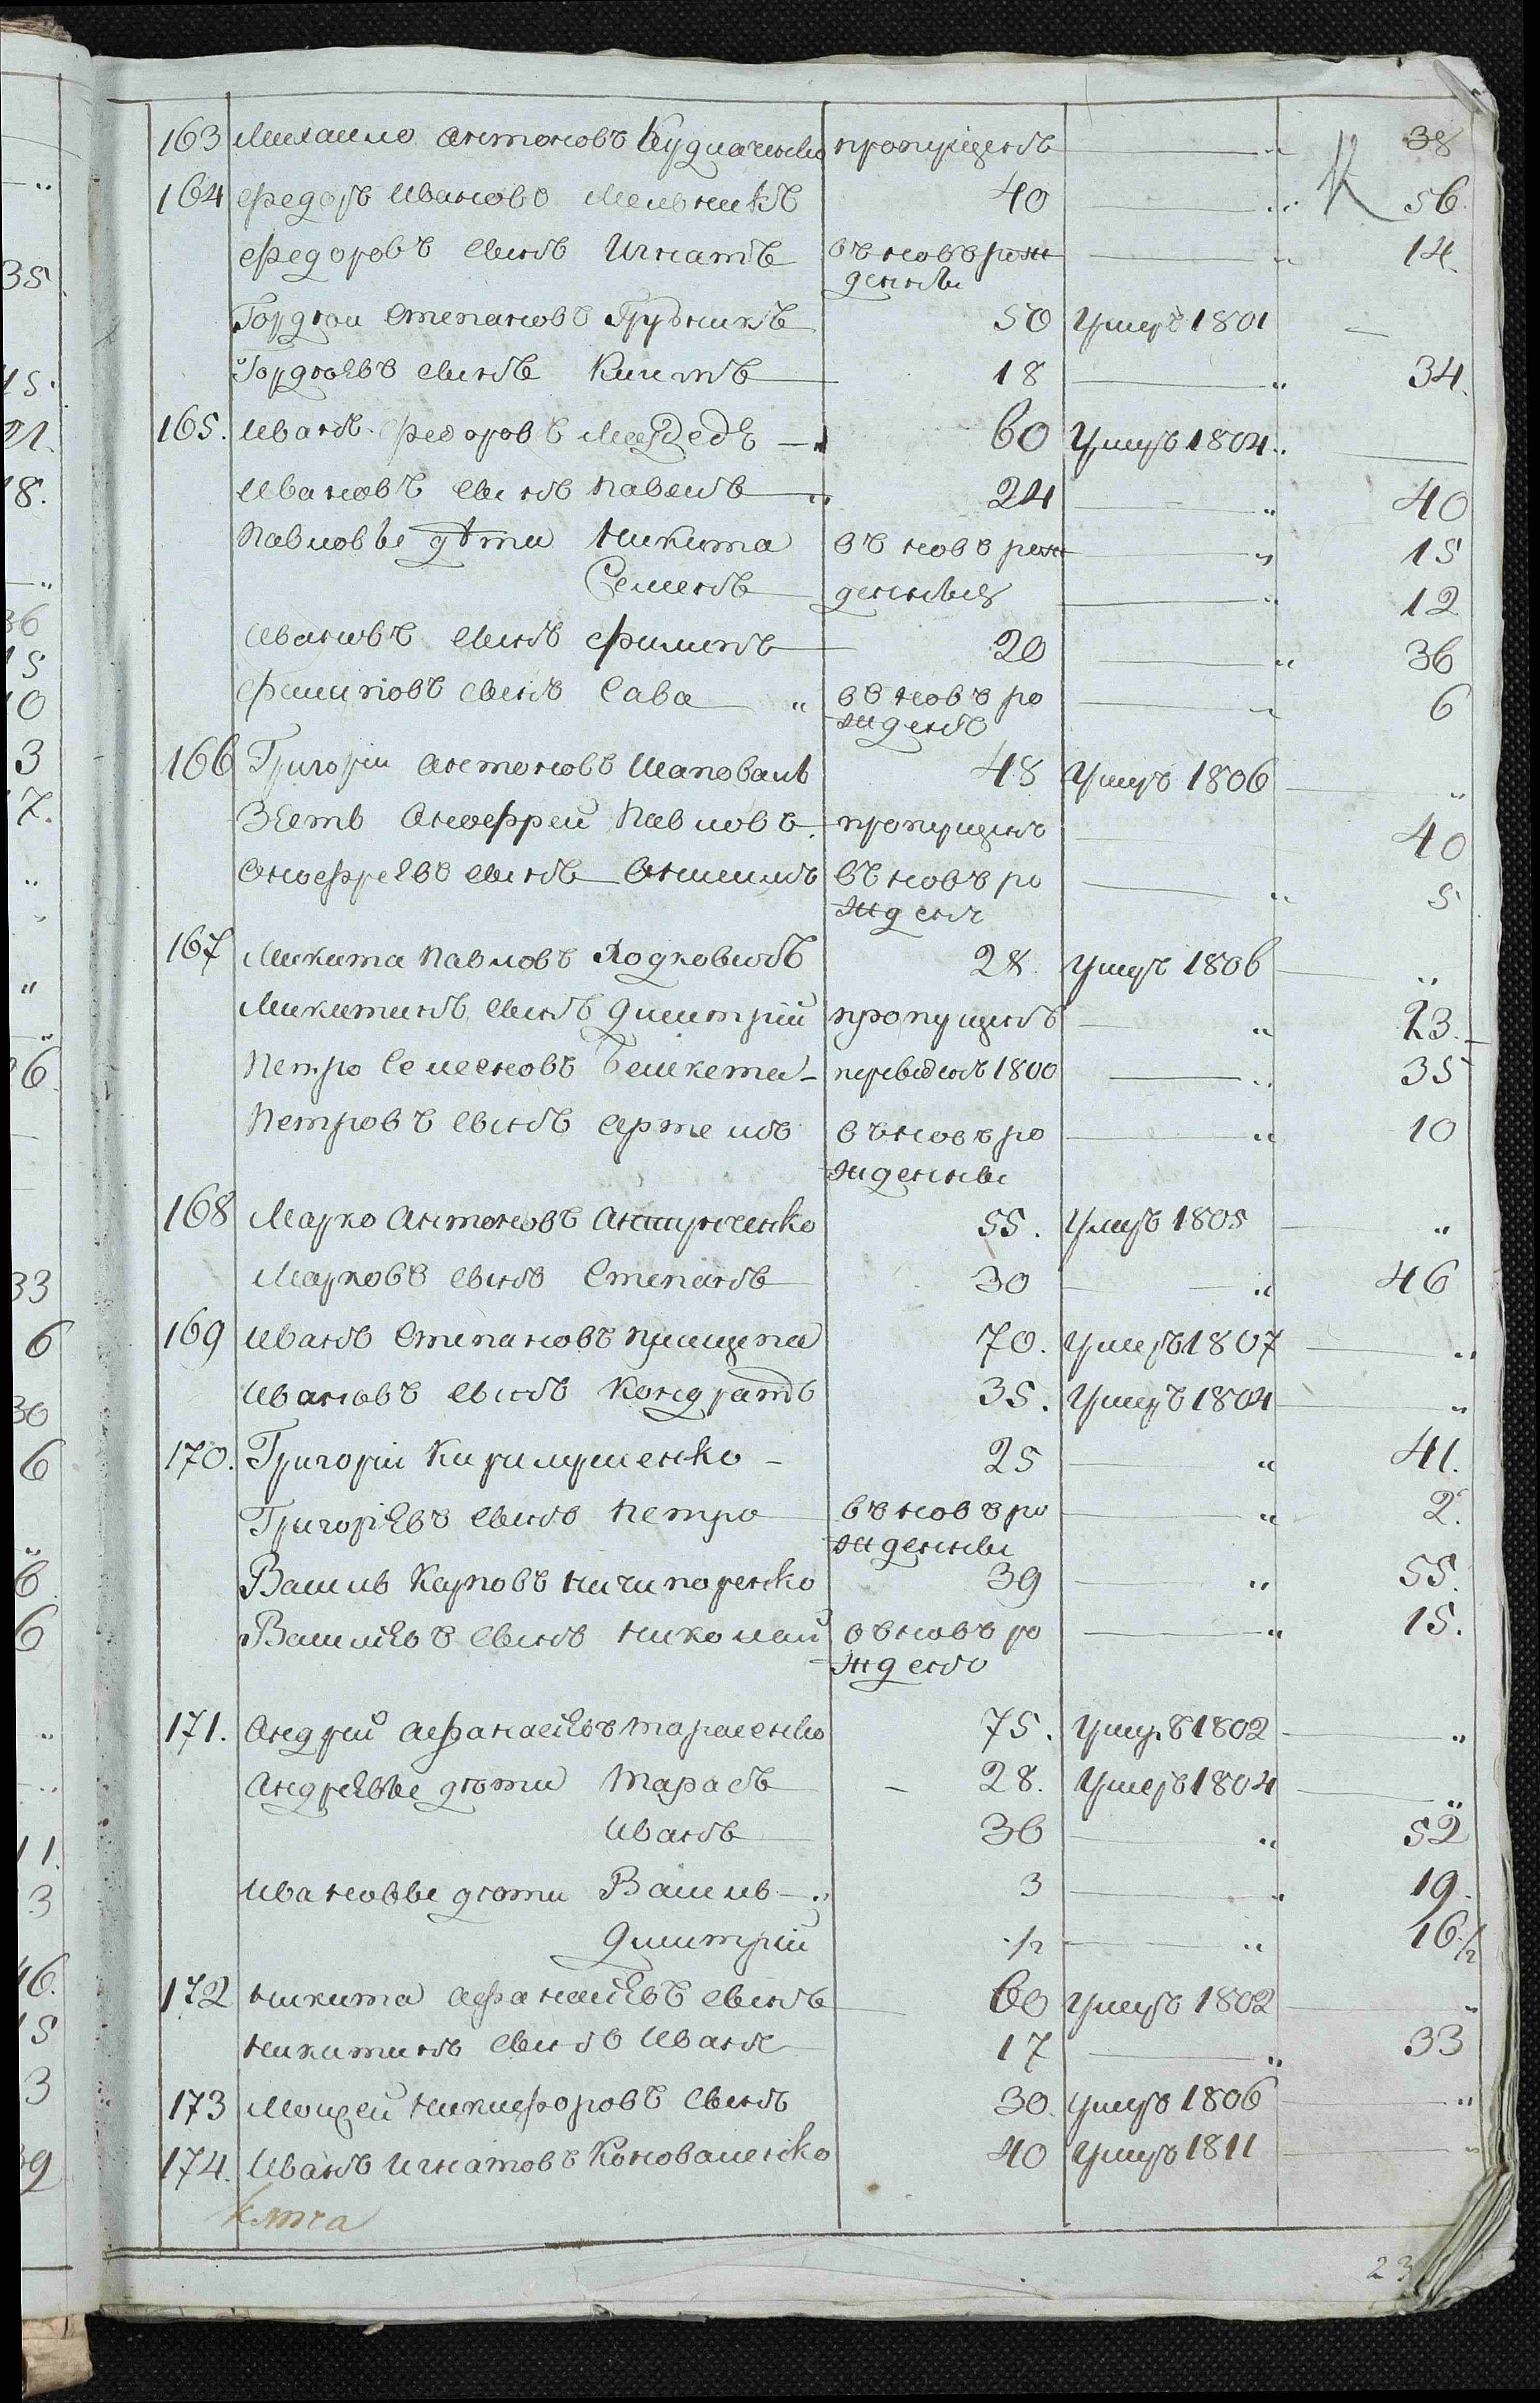 163 Михаило Антоновъ Кудлаченко пропущенъ 38
164 Федоръ Ивановъ Мельникъ 40 56.
Федоровъ сынъ Игнатъ въ новъ рож 14.
денны
Гордей Степановъ Грубникъ 50 умеръ 1801 —
Гордѣевъ сынъ Киитъ 18 34.
165. Иванъ Федоровъ Медведь 60 умеръ 1804.
Ивановъ сынъ Павелъ 24 40
Павловы дѣти Никита въ новъ рож 15
Семенъ денныя 12
Ивановъ сынъ Филипъ 20 36
Филиповъ сынъ Сава въ новъ ро 6
жденъ
166 Григорій Антоновъ Шаповалъ 48 умеръ 1806 "
Зеть Онофрей Павловъ. пропущенъ 40
Онофреевъ сынъ Онисимъ въ новъ ро 5
жденъ
167 Микита Павловъ 28. умеръ 1806 "
Микитинъ сынъ Дмитрій пропущенъ 23.
Петро Семеновъ Бешкета переведенъ 1800 35
Петровъ сынъ Артемъ въ новъ ро 10
жденны
168 Марко Антоновъ 55. умеръ 1805 "
Марковъ сынъ Степанъ 30 46
169 Иванъ Степановъ Прищепа 70. умеръ 1807 "
Ивановъ сынъ Кондратъ 35. умеръ 1804 "
170. Григорій Кирилушенко 25 41.
Григорѣевъ сынъ Петро въ новъ ро 2.
жденны
Василь Карповъ Ничипоренко 39 55.
Василѣевъ сынъ Николай въ новъ ро 15.
жденъ
171. Андрій Афанасѣевъ Тарасенко 75. умеръ 1802 "
Андреевы дѣти Тарасъ 28. умеръ 1804 "
Иванъ 36 52
Ивановы дѣти Василь 3 19.
Дмитрій ½ 16.½
172 Никита Афанасѣевъ сынъ 60 умеръ 1802 "
Никитинъ сынъ Иванъ 17 33
173 Моисей Никифоровъ сынъ 30. умеръ 1806 "
174. Иванъ Игнатовъ Коноваленко 40 умеръ 1811 "
23